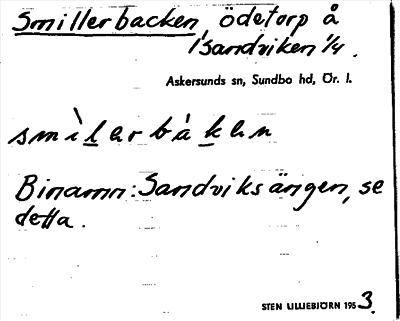 Smillerbacken, ödetorp å
Sandviken 1/4.
Askersunds sn, Sundbo hd, Ör. l.
smìlerbàken
Binamn: Sandviksängen, se
detta.
STEN LILLIEBJÖRN 1953.